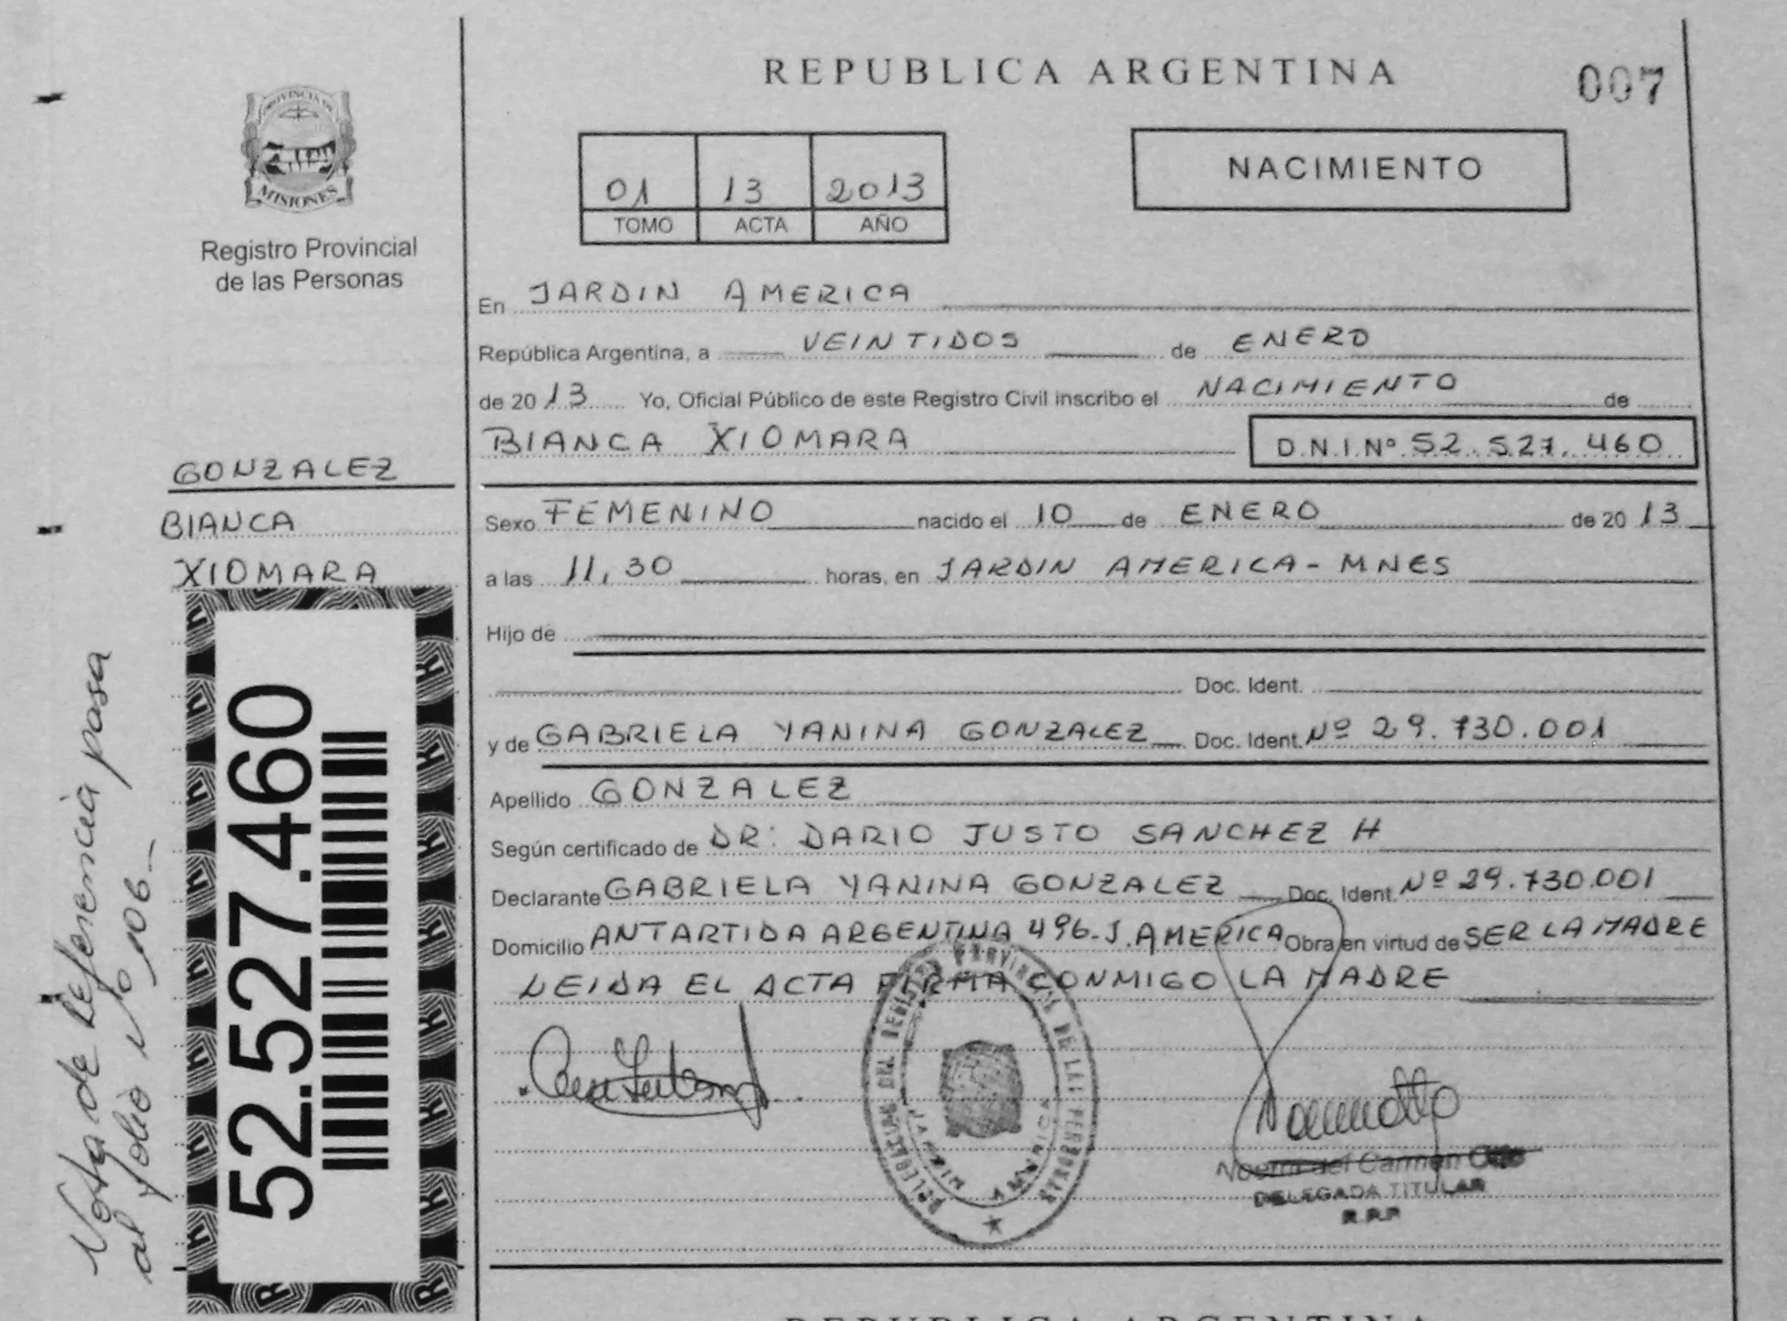 REPUBLICA ARGENTINA
007
PROVINCIA DE
MISIONES
Registro Provincial
de las Personas
01 13 2013
TOMO ACTA AÑO
NACIMIENTO
En JARDIN AMERICA
República Argentina, a VEINTIDOS de ENERO
de 2013 Yo, Oficial Público de este Registro Civil inscribo el NACIMIENTO de
BIANCA XIOMARA D.N.I.Nº 52.527.460
GONZALEZ
BIANCA
XIOMARA
Sexo FEMENINO nacido el 10 de ENERO de 2013
a las 11,30 horas, en JARDIN AMERICA - MNES
Hijo de
Doc. Ident.
y de GABRIELA YANINA GONZALEZ Doc. Ident. Nº 29.730.001
Apellido GONZALEZ
Según certificado de DR: DARIO JUSTO SANCHEZ H
Declarante GABRIELA YANINA GONZALEZ Doc. Ident. Nº 29.730.001
Domicilio ANTARTIDA ARGENTINA 496-J.AMERICA Obra en virtud de SER LA MADRE
LEIDA EL ACTA FIRMA CONMIGO LA MADRE
52.527.460
Nota de Referencia pasa
al folio Nº 106_
del Carmen
DELEGADA TITULAR
R.P.P
REPUBLICA ARGENTINA